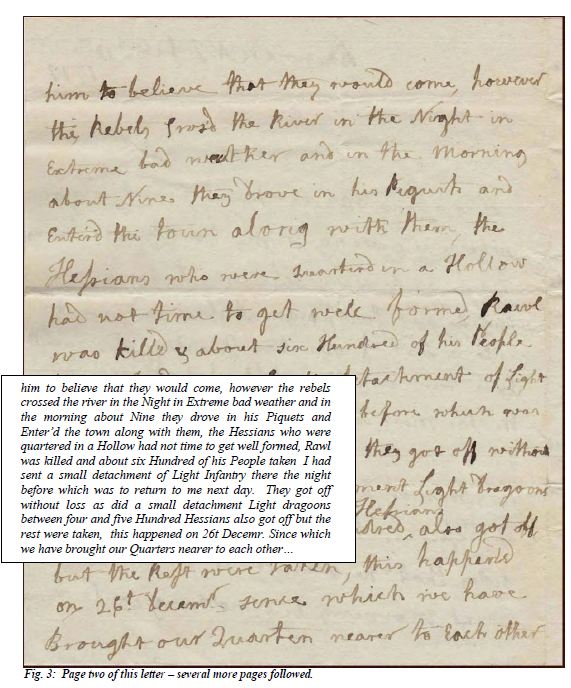 him to believe that they would come, however
the Rebels Cross'd the River in the Night in
Extreme bad weather and in the Morning
about Nine they drove in his Piquets and
Enter'd the town along with them, the
Hessians who were Quarter'd in a Hollow
had not time to get well formed, Rawl
was killed & about six Hundred of his People
detachment of Light
before which was
they got off without
ment Light Dragoons
Hessians
dred, also got off
but the Rest were taken, this happen'd
on 26t Decemr. sence which we have
Brought our Quarters nearer to Each other
him to believe that they would come, however the rebels
crossed the river in the Night in Extreme bad weather and in
the morning about Nine they drove in his Piquets and
Enter'd the town along with them, the Hessians who were
quartered in a Hollow had not time to get well formed, Rawl
was killed and about six Hundred of his People taken I had
sent a small detachment of Light Infantry there the night
before which was to return to me next day. They got off
without loss as did a small detachment Light dragoons
between four and five Hundred Hessians also got off but the
rest were taken, this happened on 26t Decemr. Since which
we have brought our Quarters nearer to each other…
Fig. 3: Page two of this letter – several more pages followed.